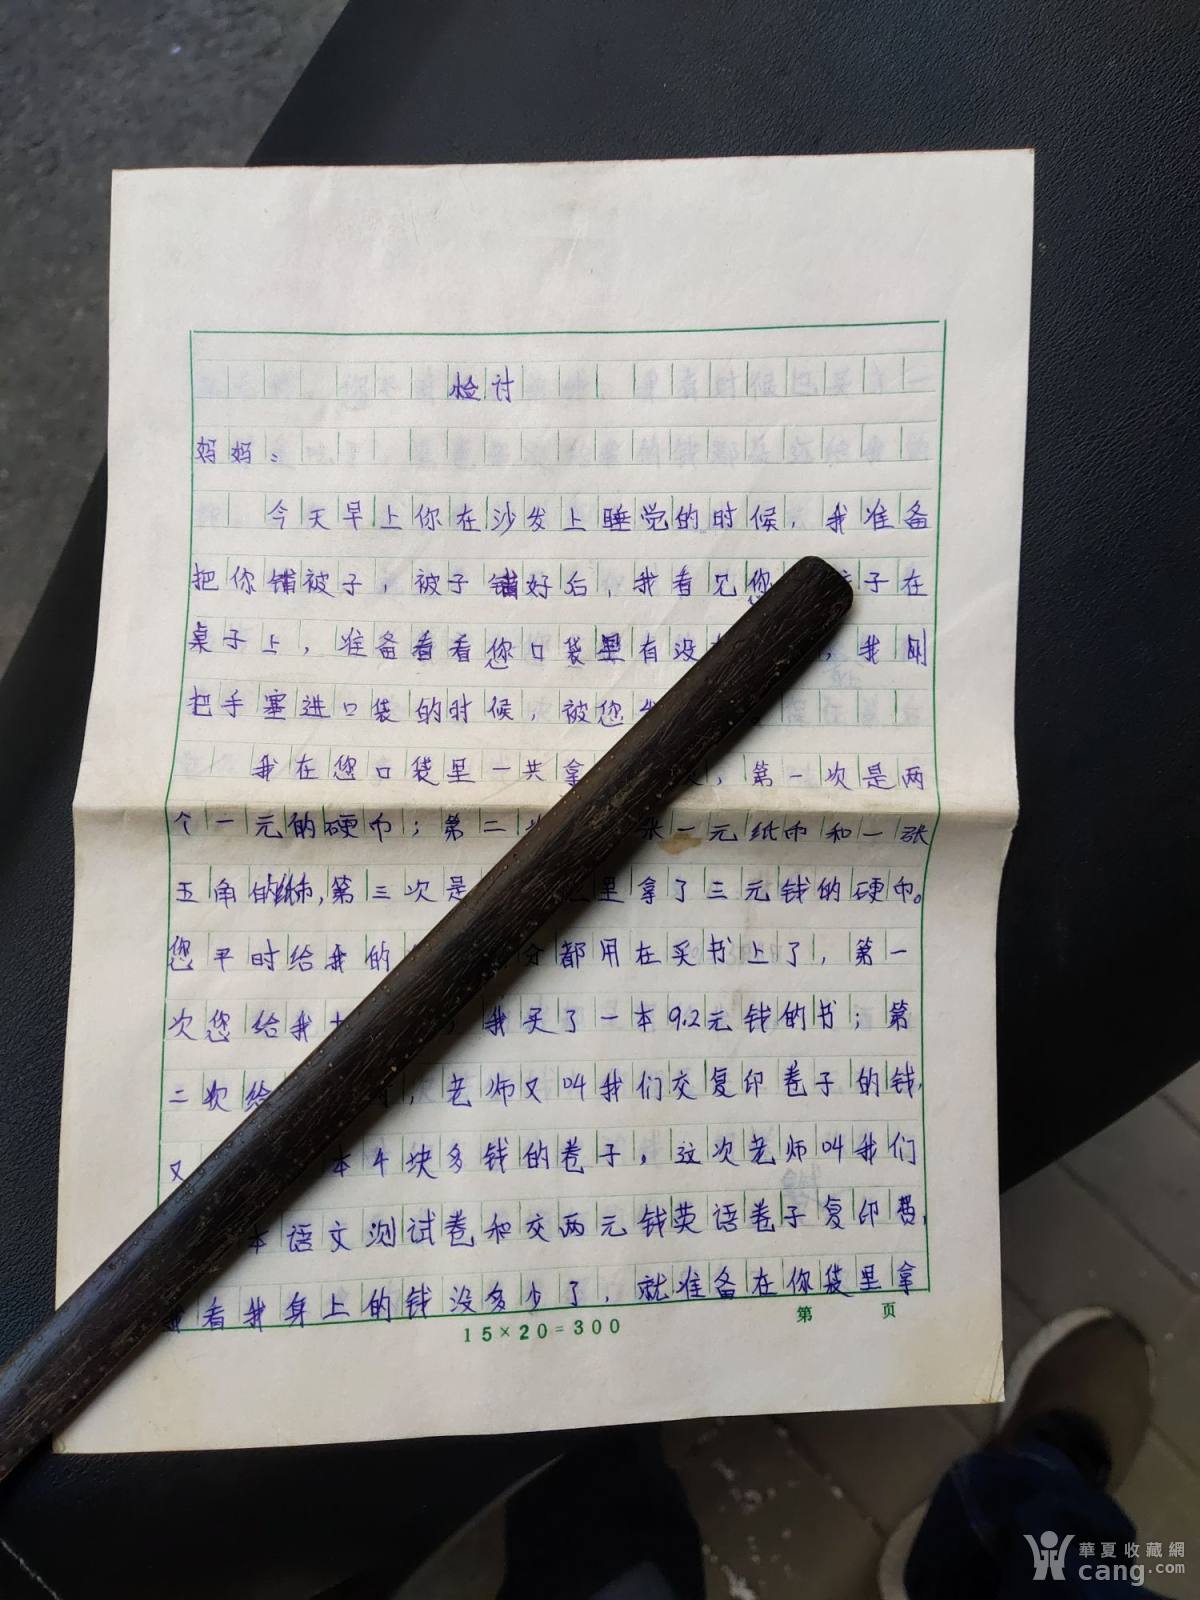 检讨
妈妈：
今天早上你在沙发上睡觉的时候，我准备
把你铺被子，被子铺好后，我看见您 子在
桌子上，准备看看您口袋里有没 ，我刚
把手塞进口袋的时候，被您
我在您口袋里一共拿 ，第一次是两
个一元的硬币；第二 张一元纸币和一张
五角的纸币，第三次是 里拿了三元钱的硬币。
您平时给我的 分都用在买书上了，第一
次您给我 ，我买了一本9.2元钱的书；第
二次给 ，老师又叫我们交复印卷子的钱，
又 本4块多钱的卷子，这次老师叫我们
本语文测试卷和交两元钱英语卷子复印费，
我看我身上的钱没多少了，就准备在你袋里拿
15×20=300 第 页
華夏收藏網
cang.com